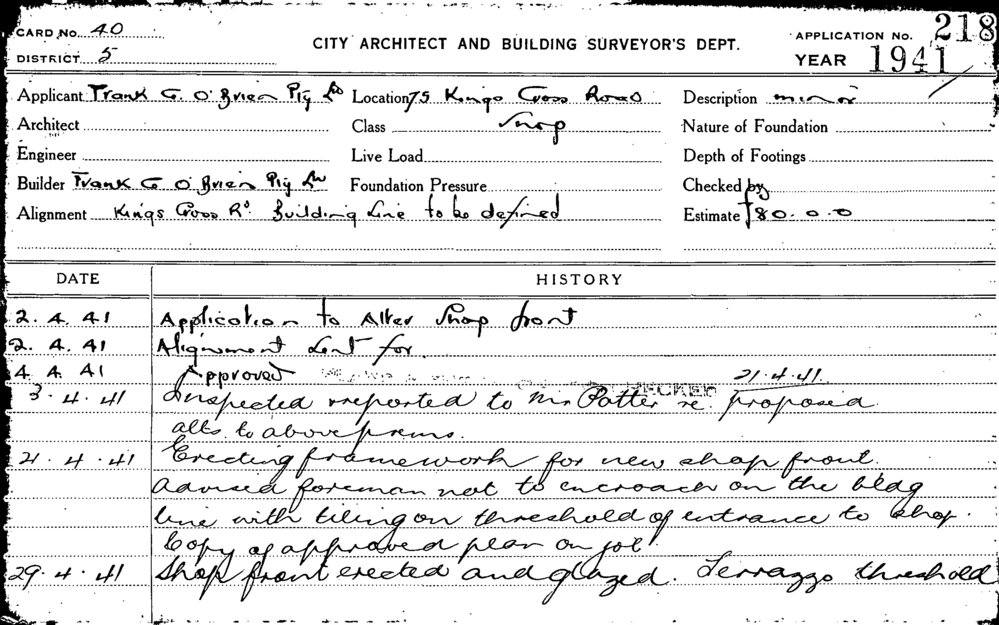 CARD No. 40
DISTRICT 5
CITY ARCHITECT AND BUILDING SURVEYOR'S DEPT.
APPLICATION No. 218
YEAR 1941
Applicant Frank G. O'Brien Pty Ltd Location 75 Kings Cross Road Description minor
Architect Class Shop Nature of Foundation
Engineer Live Load Depth of Footings
Builder Frank G O'Brien Pty Ltd Foundation Pressure Checked by
Alignment Kings Cross Rd. Building Line to be defined Estimate £80.0.0
DATE HISTORY
2. 4. 41 Application to Alter Shop front
2. 4. 41 Alignment Sent for.
4. 4. 41 Approved CHECKED 21.4.41.
3. 4. 41 Inspected & reported to Mr Potter re. proposed
alts. to above prems.
21. 4. 41 Erecting framework for new shop front.
Advised foreman not to encroach on the bldg
line with tiling on threshold of entrance to shop.
Copy of approved plan on job.
29. 4. 41 Shop front erected and glazed. Terrazzo threshold